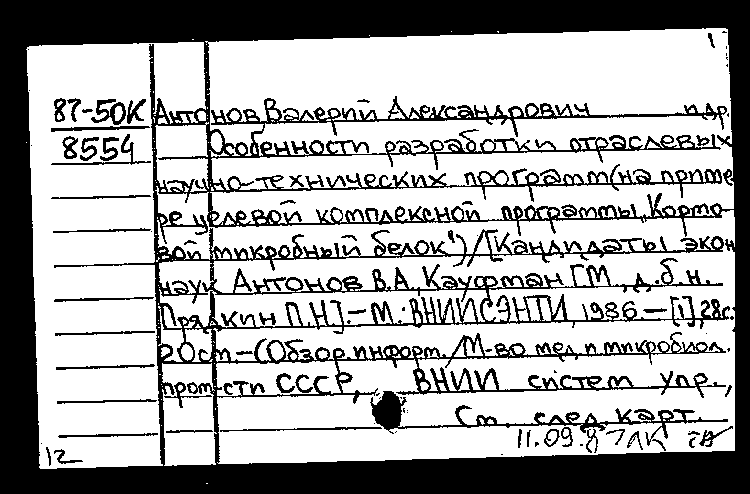 1
87-50К Антонов Валерий Александрович и др.
8554 Особенности разработки отраслевых
научно-технических программ (на приме
ре целевой комплексной программы „Кормо-
вой микробный белок") / [Кандидаты экон
наук Антонов В.А., Кауфман Г.М., д.б.н.
Прядкин П.Н]. – М.: ВНИИСЭНТИ, 1986. – [1], 28с.;
20см. – (Обзор. информ. / М-во мед. и микробиол.
пром-сти СССР, ВНИИ систем упр.,
См. след. карт.
11.09.87
12